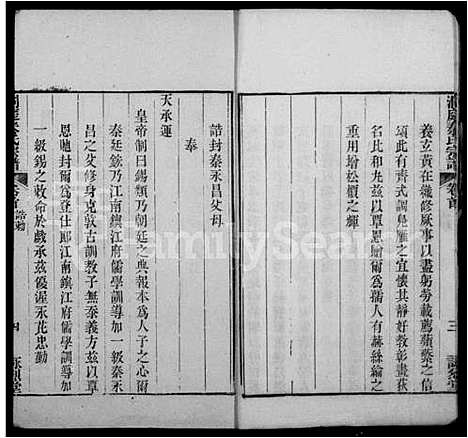 洞庭秦氏宗譜
卷首
三
義立黃在織修厥事以盡躬勞載薦蘋蘩之信
頌此有齊式調凫雁之宜懷其靜好教彰畫荻
名比和丸茲以覃恩贈爾為孺人有赫絲綸之
重用增松檟之輝
誥封秦永昌父母
奉
天承運
皇帝制曰錫類乃朝廷之典報本為人子之心爾
秦廷鉉乃江南鎮江府儒學訓導加一級秦永
昌之父修身克敦古訓教子無忝義方茲以覃
恩貤封爾為登仕郎江南鎮江府儒學訓導加
一級錫之敕命於戲承茲優渥永茂忠勤
卷首
誥勅
四
FamilySearch